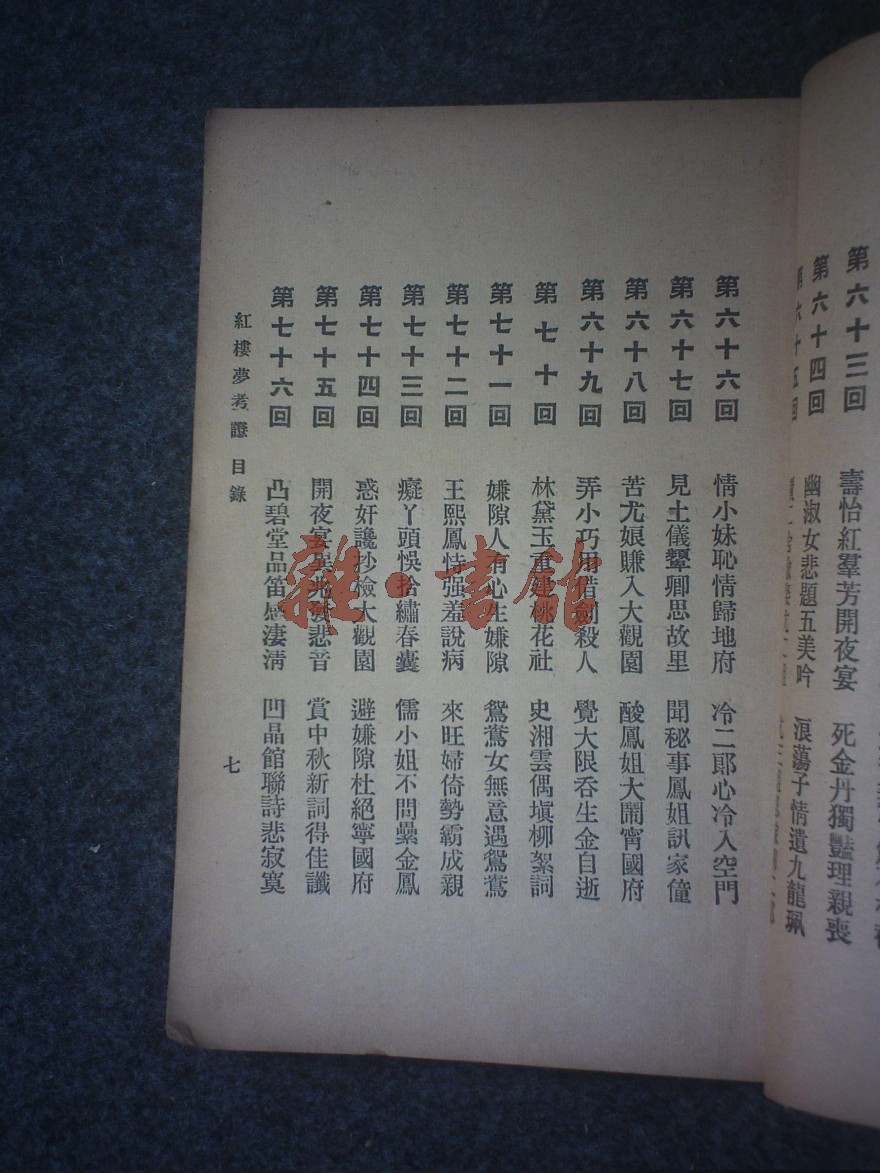 第六十三回　壽怡紅羣芳開夜宴　死金丹獨豔理親喪
第六十四回　幽淑女悲題五美吟　浪蕩子情遺九龍珮
第六十五回
第六十六回　情小妹恥情歸地府　冷二郞心冷入空門
第六十七回　見土儀顰卿思故里　聞秘事鳳姐訊家僮
第六十八回　苦尤娘賺入大觀園　酸鳳姐大鬧甯國府
第六十九回　弄小巧用借劍殺人　覺大限吞生金自逝
第七十回　林黛玉重建桃花社　史湘雲偶塡柳絮詞
第七十一回　嫌隙人有心生嫌隙　鴛鴦女無意遇鴛鴦
第七十二回　王熙鳳恃强羞說病　來旺婦倚勢霸成親
第七十三回　癡丫頭悞拾繡春囊　儒小姐不問纍金鳳
第七十四回　惑奸讒抄檢大觀園　避嫌隙杜絕寧國府
第七十五回　開夜宴異兆發悲音　賞中秋新詞得佳讖
第七十六回　凸碧堂品笛感淒淸　凹晶館聯詩悲寂寞
紅樓夢考證　目錄　七
雜·書館